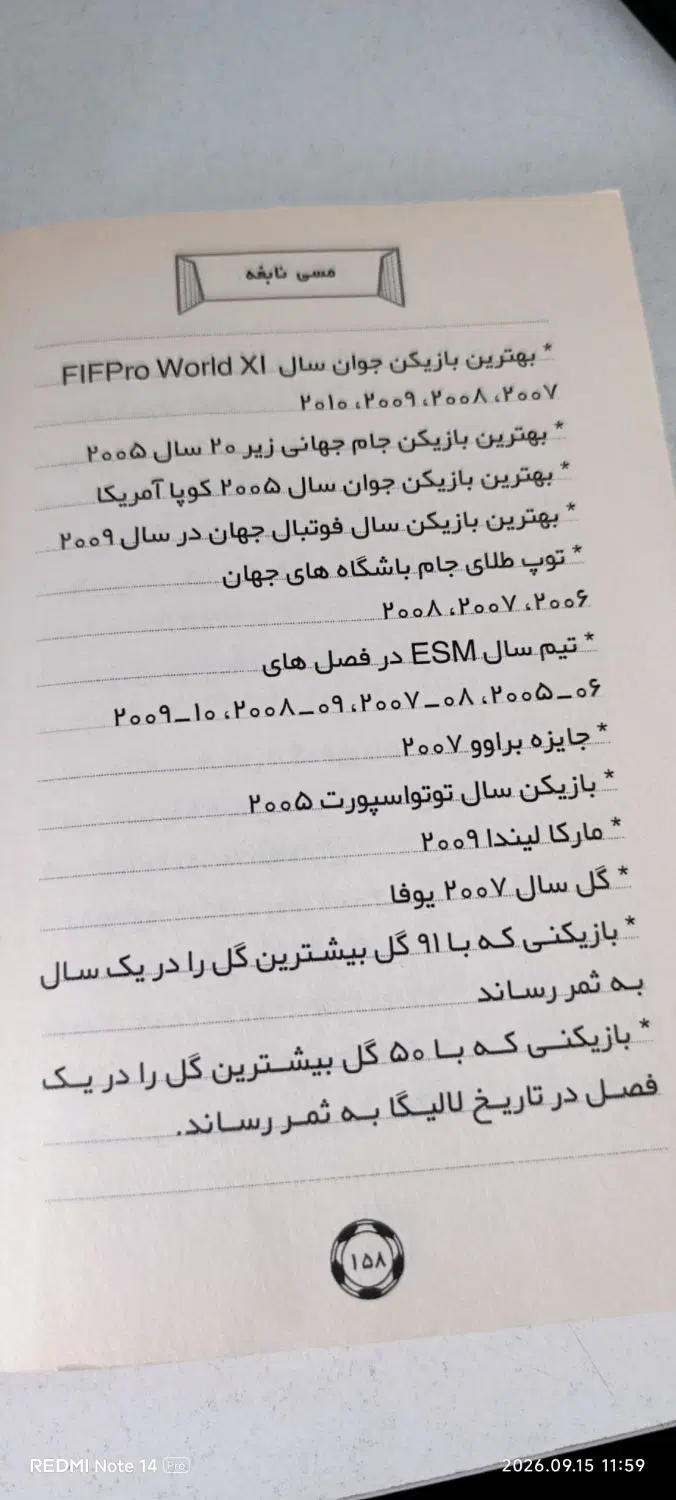 مسی نابغه
* بهترین بازیکن جوان سال FIFPro World XI
۲۰۰۷، ۲۰۰۸، ۲۰۰۹، ۲۰۱۰
* بهترین بازیکن جام جهانی زیر ۲۰ سال ۲۰۰۵
* بهترین بازیکن جوان سال ۲۰۰۵ کوپا آمریکا
* بهترین بازیکن سال فوتبال جهان در سال ۲۰۰۹
* توپ طلای جام باشگاه های جهان
۲۰۰۶، ۲۰۰۷، ۲۰۰۸
* تیم سال ESM در فصل های
۰۶_۲۰۰۵، ۰۸_۲۰۰۷، ۰۹_۲۰۰۸، ۱۰_۲۰۰۹
* جایزه براوو ۲۰۰۷
* بازیکن سال توتواسپورت ۲۰۰۵
* مارکا لیندا ۲۰۰۹
* گل سال ۲۰۰۷ یوفا
* بازیکنی که با ۹۱ گل بیشترین گل را در یک سال
به ثمر رساند
* بازیکنی که با ۵۰ گل بیشترین گل را در یک
فصل در تاریخ لالیگا به ثمر رساند.
۱۵۸
REDMI Note 14 Pro
2026.09.15 11:59